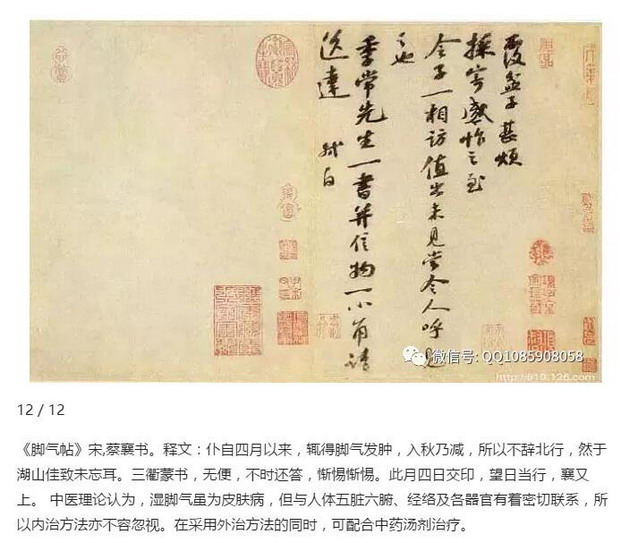 覆盆子甚煩
採寄感怍之至
令子一相訪值出未見當令人呼見
之也
季常先生一書并信物一小角請
送達 軾白
微信号: QQ1085908058
12 / 12
《脚气帖》宋,蔡襄书。释文：仆自四月以来，辄得脚气发肿，入秋乃减，所以不辞北行，然于
湖山佳致未忘耳。三衢蒙书，无便，不时还答，惭惕惭惕。此月四日交印，望日当行，襄又
上。 中医理论认为，湿脚气虽为皮肤病，但与人体五脏六腑、经络及各器官有着密切联系，所
以内治方法亦不容忽视。在采用外治方法的同时，可配合中药汤剂治疗。